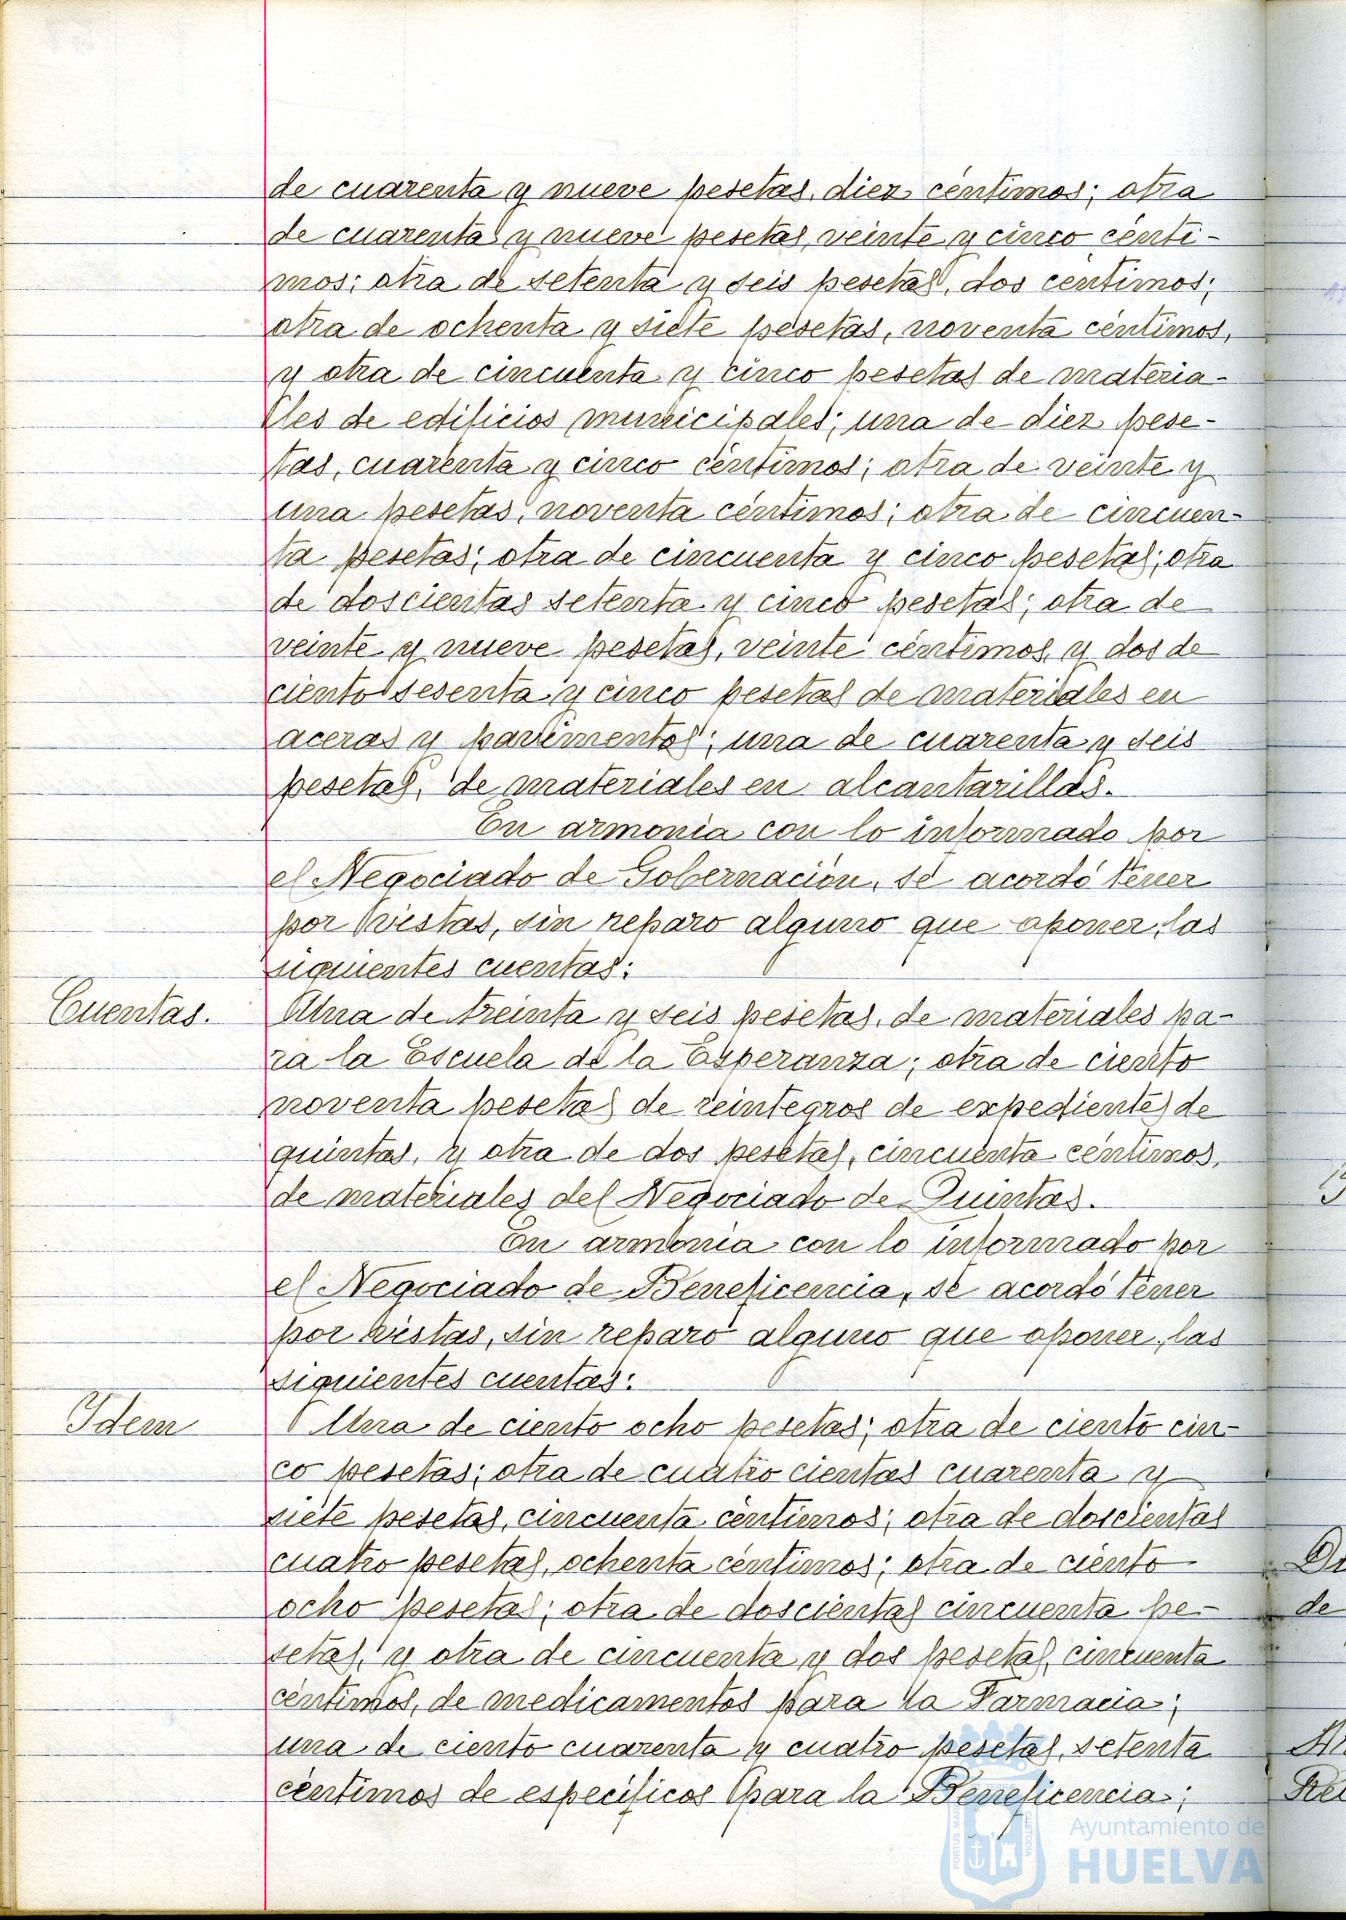 de cuarenta y nueve pesetas, diez céntimos; otra
de cuarenta y nueve pesetas, veinte y cinco cénti-
mos; otra de setenta y seis pesetas, dos céntimos;
otra de ochenta y siete pesetas, noventa céntimos,
y otra de cincuenta y cinco pesetas de materia-
les de edificios municipales; una de diez pese-
tas, cuarenta y cinco céntimos; otra de veinte y
una pesetas, noventa céntimos; otra de cincuen-
ta pesetas; otra de cincuenta y cinco pesetas; otra
de doscientas setenta y cinco pesetas; otra de
veinte y nueve pesetas, veinte céntimos, y dos de
ciento sesenta y cinco pesetas de materiales en
aceras y pavimentos; una de cuarenta y seis
pesetas, de materiales en alcantarillas.
En armonía con lo informado por
el Negociado de Gobernación, se acordó tener
por vistas, sin reparo alguno que oponer, las
siguientes cuentas:
Cuentas.
Una de treinta y seis pesetas, de materiales pa-
ra la Escuela de la Esperanza; otra de ciento
noventa pesetas de reintegros de expedientes de
quintas, y otra de dos pesetas, cincuenta céntimos,
de materiales del Negociado de Quintas.
En armonía con lo informado por
el Negociado de Beneficencia, se acordó tener
por vistas, sin reparo alguno que oponer, las
siguientes cuentas:
Idem
Una de ciento ocho pesetas; otra de ciento cin-
co pesetas; otra de cuatro cientas cuarenta y
siete pesetas, cincuenta céntimos; otra de doscientas
cuatro pesetas, ochenta céntimos; otra de ciento
ocho pesetas; otra de doscientas cincuenta pe-
setas, y otra de cincuenta y dos pesetas, cincuenta
céntimos, de medicamentos para la Farmacia;
una de ciento cuarenta y cuatro pesetas, setenta
céntimos de específicos para la Beneficencia;
de
Ayuntamiento de
HUELVA